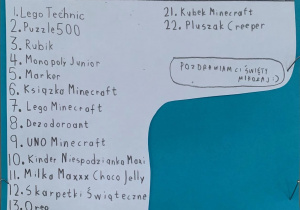 1. Lego Technic
2. Puzzle 500
3. Rubik
4. Monopoly Junior
5. Marker
6. Książka Minecraft
7. Lego Minecraft
8. Dezodoroant
9. UNO Minecraft
10. Kinder Niespodzianka Maxi
11. Milka Maxxx Choco Jelly
12. Skarpetki Świąteczne
13. Oreo
21. Kubek Minecraft
22. Pluszak Creeper
POZDRAWIAM CI ŚWIĘTY
MIKOŁAJ :)